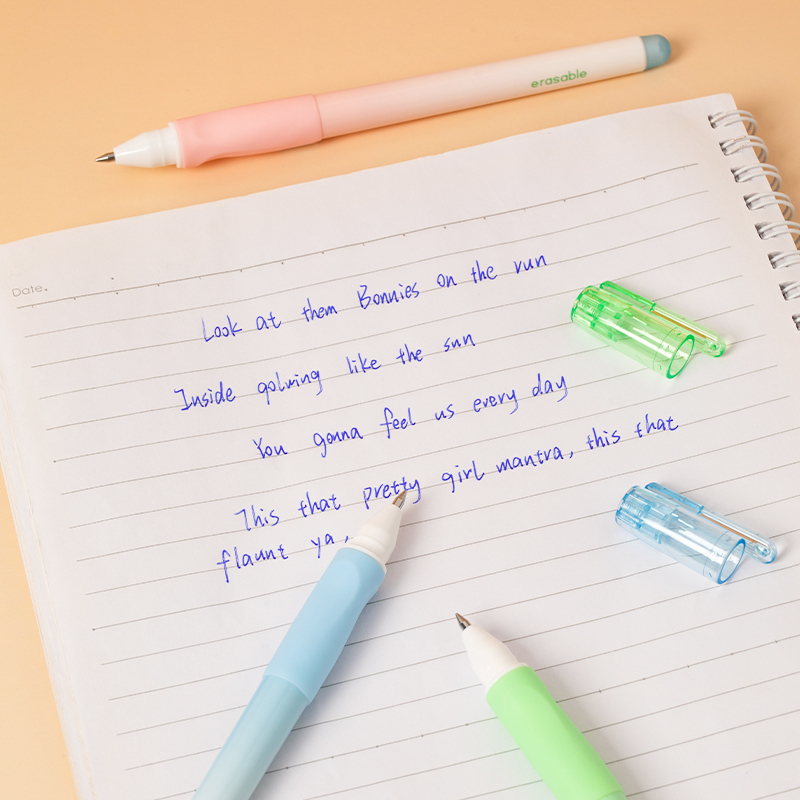 erasable
Date.
Look at them Bonnies on the run
Inside golving like the sun
You gonna feel us every day
This that pretty girl mantra, this that
flaunt ya,